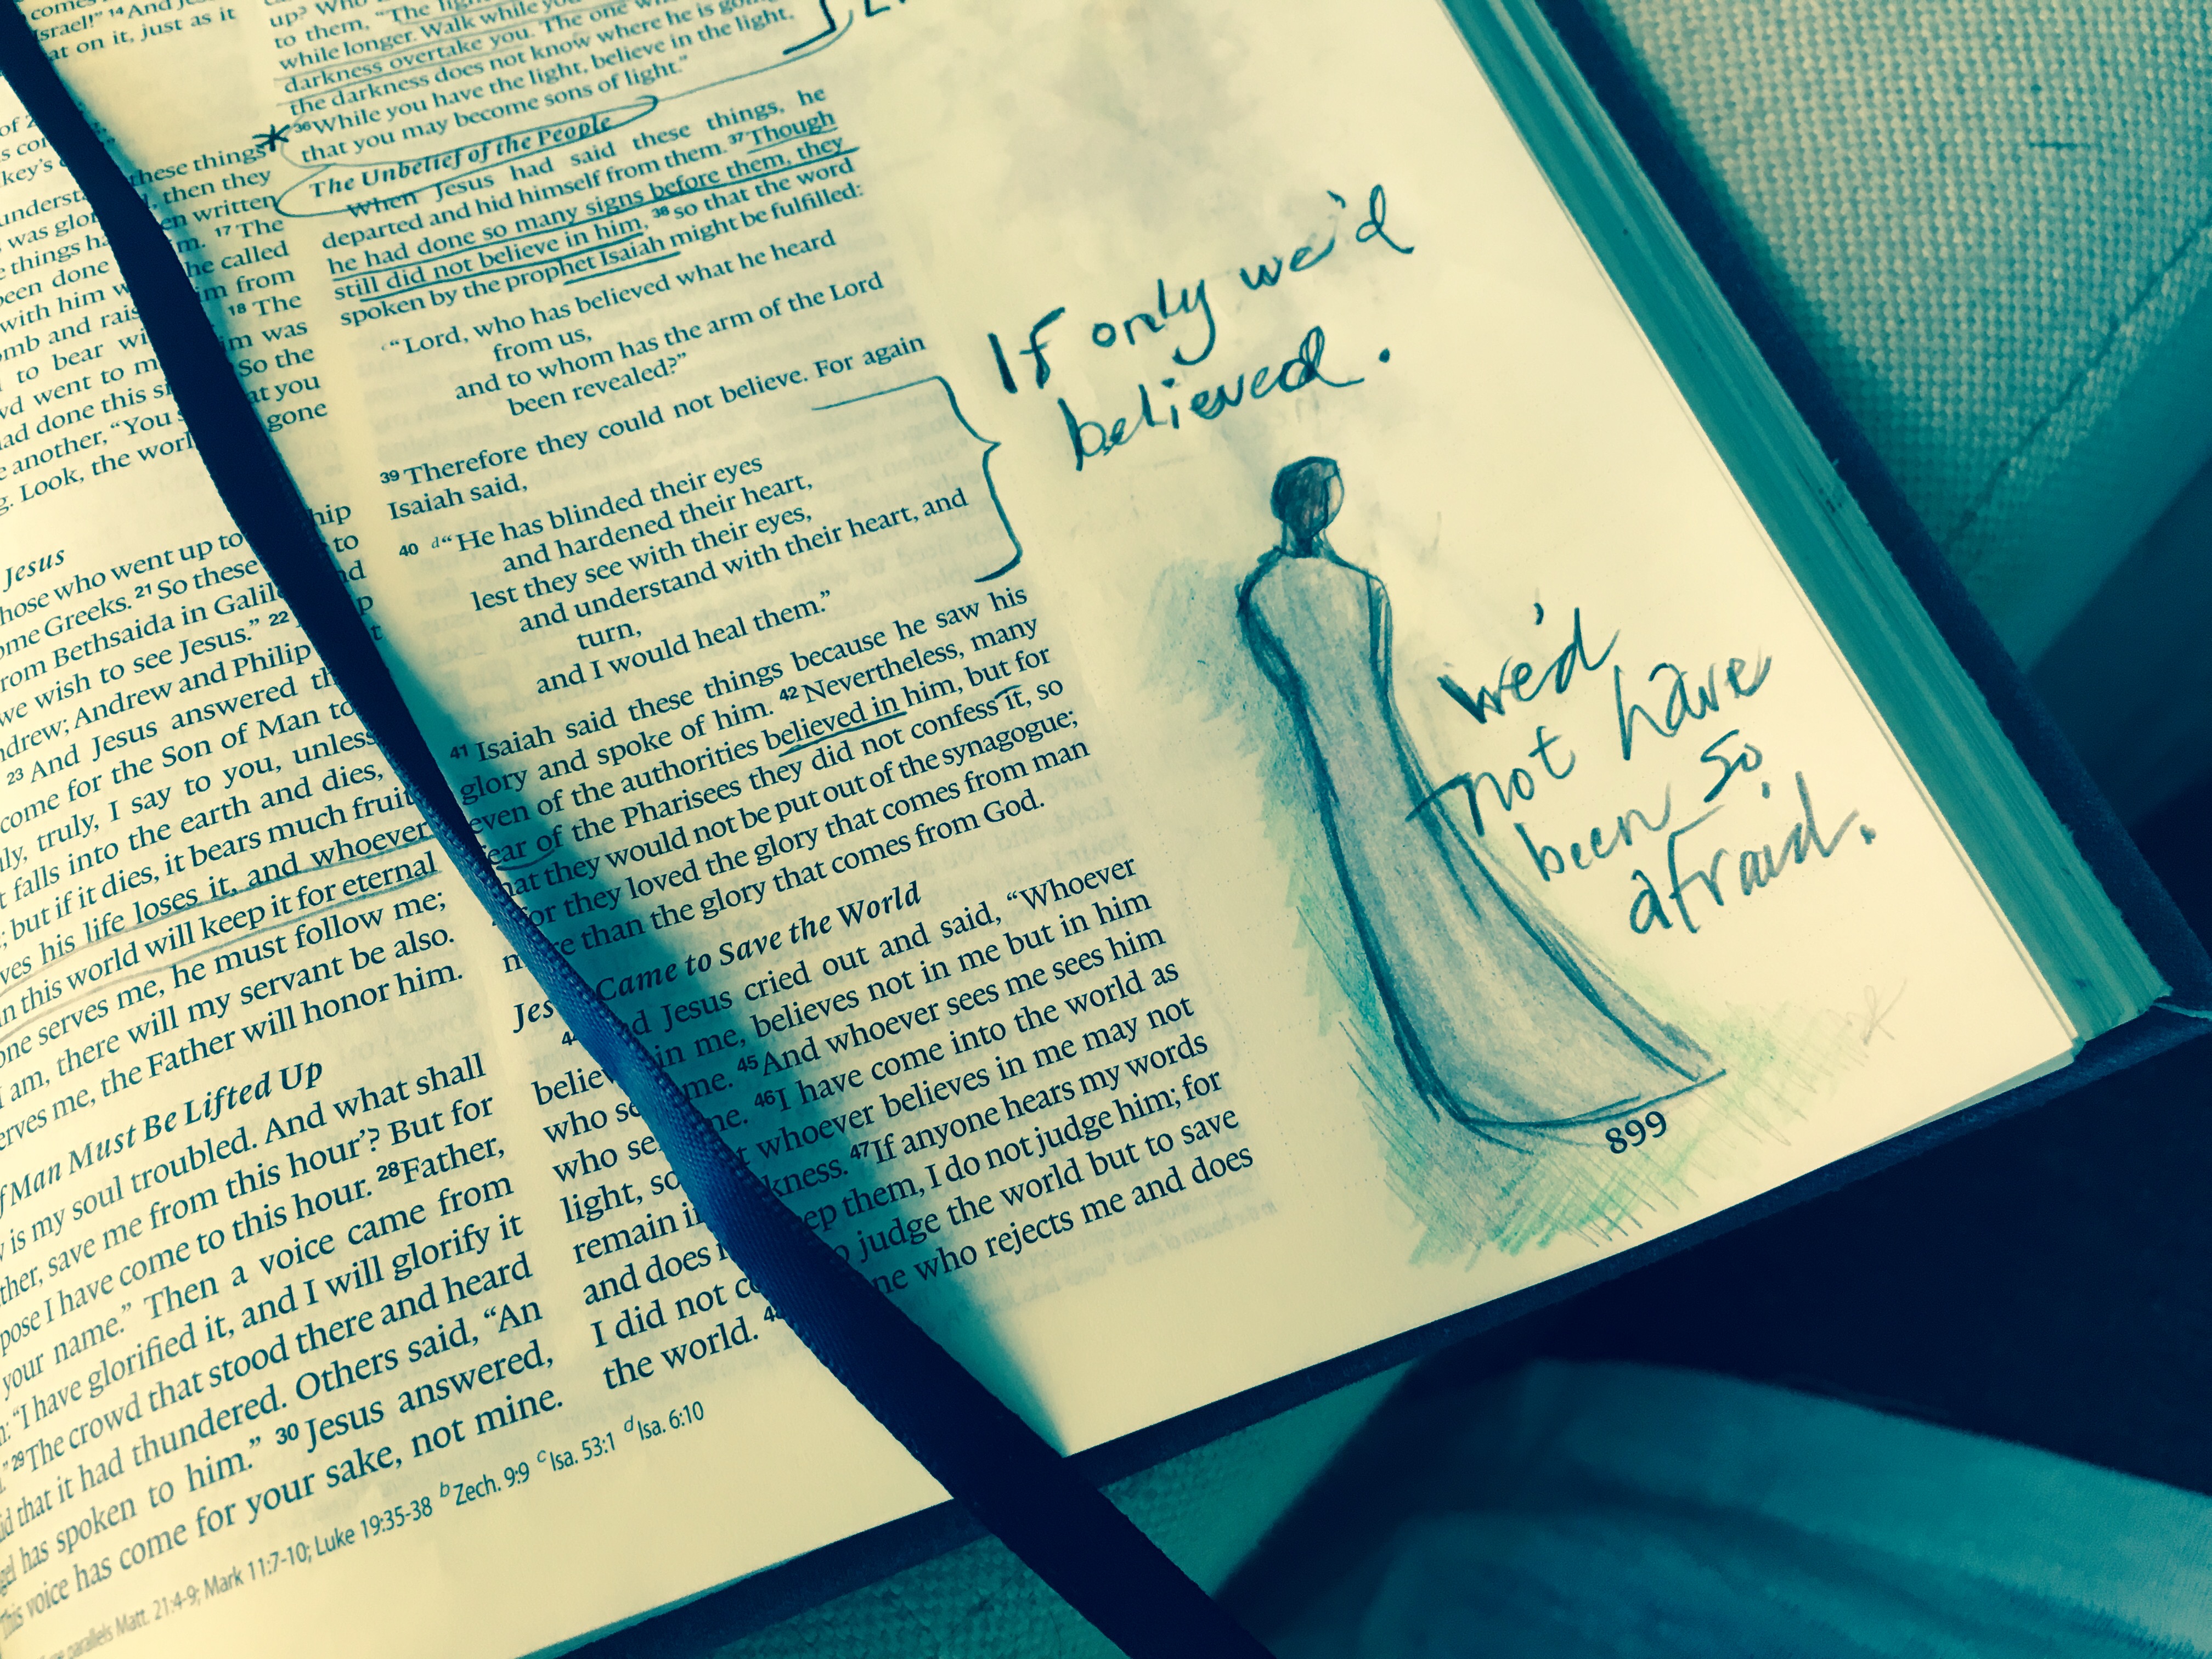 Israel!” 14 And
at on it, just as it
these things
then they
written
17 The
he called
from
18 The
was
So the
at you
gone
underst
was glo
things ha
been done
with him w
omb and rais
to bear wi
wd went to m
had done this si
another, “You
Look, the worl
Jesus
hose who went up to
ome Greeks. 21 So these
rom Bethsaida in Galil
we wish to see Jesus.” 22
drew; Andrew and Philip
23 And Jesus answered th
come for the Son of Man to
truly, I say to you, unless
falls into the earth and dies,
; but if it dies, it bears much fruit
ves his life loses it, and whoever
in this world will keep it for eternal
one serves me, he must follow me;
I am, there will my servant be also.
erves me, the Father will honor him.
f Man Must Be Lifted Up
is my soul troubled. And what shall
ther, save me from this hour’? But for
pose I have come to this hour. 28 Father,
your name.” Then a voice came from
“I have glorified it, and I will glorify it
29 The crowd that stood there and heard
id that it had thundered. Others said, “An
gel has spoken to him.” 30 Jesus answered,
This voice has come for your sake, not mine.
parallels Matt. 21:4-9; Mark 11:7-10; Luke 19:35-38 b Zech. 9:9 c Isa. 53:1 d Isa. 6:10
to them, “The
while longer. Walk while you
darkness overtake you. The one
the darkness does not know where he is going.
36 While you have the light, believe in the light,
that you may become sons of light.”
The Unbelief of the People
When Jesus had said these things, he
departed and hid himself from them. 37 Though
he had done so many signs before them, they
still did not believe in him, 38 so that the word
spoken by the prophet Isaiah might be fulfilled:
“Lord, who has believed what he heard
from us,
and to whom has the arm of the Lord
been revealed?”
39 Therefore they could not believe. For again
Isaiah said,
40 d “He has blinded their eyes
and hardened their heart,
lest they see with their eyes,
and understand with their heart, and
turn,
and I would heal them.”
41 Isaiah said these things because he saw his
glory and spoke of him. 42 Nevertheless, many
even of the authorities believed in him, but for
fear of the Pharisees they did not confess it, so
hat they would not be put out of the synagogue;
for they loved the glory that comes from man
re than the glory that comes from God.
Jes Came to Save the World
d Jesus cried out and said, “Whoever
believ in me, believes not in me but in him
who se me. 45 And whoever sees me sees him
who se me. 46 I have come into the world as
light, so t whoever believes in me may not
remain i kness. 47 If anyone hears my words
and does ep them, I do not judge him; for
I did not c o judge the world but to save
the world. ne who rejects me and does
If only we'd
believed.
we'd
not have
been so
afraid.
899